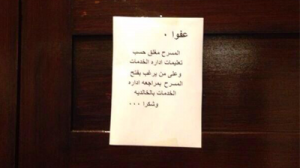 عفوا .
المسرح مغلق حسب
تعليمات اداره الخدمات
وعلى من يرغب بفتح
المسرح بمراجعه اداره
الخدمات بالخالديه
وشكرا ...